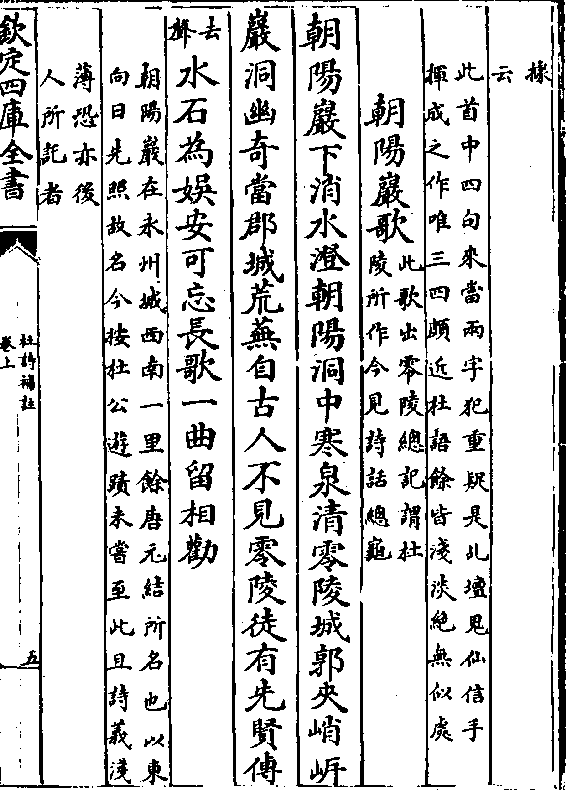 據
云
此首中四句來當兩字犯重疑是乩壇鬼仙信手
揮成之作唯三四頗近杜語餘皆淺淡絕無似處
朝陽巖歌
此歌出零陵總記謂杜
陵所作今見詩話總龜
朝陽巖下消水澄朝陽洞中寒泉清零陵城郭夾峭岍
巖洞幽奇當郡城荒蕪自古人不見零陵徒有先賢傳
去
聲
水石為娛安可忘長歌一曲留相勸
朝陽巖在永州城西南一里餘唐元結所名也以東
向日先照故名今按杜公遊蹟未嘗至此且詩義淺
薄恐亦後
人所託者
欽定四庫全書
杜詩補註
卷上
五